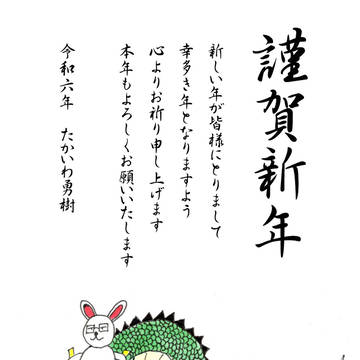 謹賀新年
新しい年が皆様にとりまして
幸多き年となりますよう
心よりお祈り申し上げます
本年もよろしくお願いいたします
令和六年　たかいわ勇樹